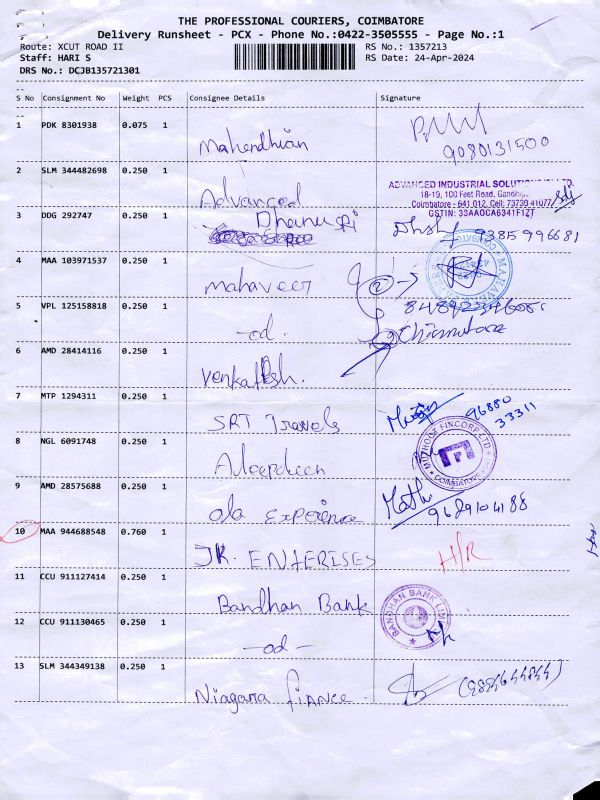 THE PROFESSIONAL COURIERS, COIMBATORE
Delivery Runsheet - PCX - Phone No.:0422-3505555 - Page No.:1
Route: XCUT ROAD II RS No.: 1357213
Staff: HARI S RS Date: 24-Apr-2024
DRS No.: DCJB135721301
--
--
S No Consignment No Weight PCS Consignee Details Signature
--
1 PDK 8301938 0.075 1
Mahendhian
9080131500
2 SLM 344482698 0.250 1
Advanced
ADVANCED INDUSTRIAL SOLUTION
18-19, 100 Feet Road,
Coimbatore - 641 012. Cell: 73730 41077
GSTIN: 33AAOCA6341F1ZT
3 DDG 292747 0.250 1
Dhanu SRi
9385996681
4 MAA 103971537 0.250 1
mahaveer
2
5 VPL 125158818 0.250 1
-od.
6 AMD 28414116 0.250 1
Venkatesh.
7 MTP 1294311 0.250 1
SRT Travels
96880
33311
8 NGL 6091748 0.250 1
MUTHOOT FINCORP LTD
COIMBATORE
9 AMD 28575688 0.250 1
ola Experince
Math
9689104188
10 MAA 944688548 0.760 1
JK. ENTERISES
H/R
11 CCU 911127414 0.250 1
Bandhan Bank
BANDHAN BANK
12 CCU 911130465 0.250 1
-od-
13 SLM 344349138 0.250 1
Niagara fiANCE.